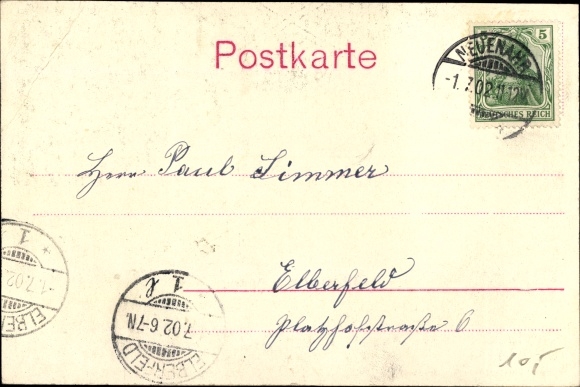 Postkarte
5
NEUENAHR
-1.7.02.11-12V
DEUTSCHES REICH
Herrn Paul Simmer
Elberfeld
Platzhofstraße 6
1
1.7.02
ELBERFELD
1 l
7.02 6-7N.
ELBERFELD
10,-